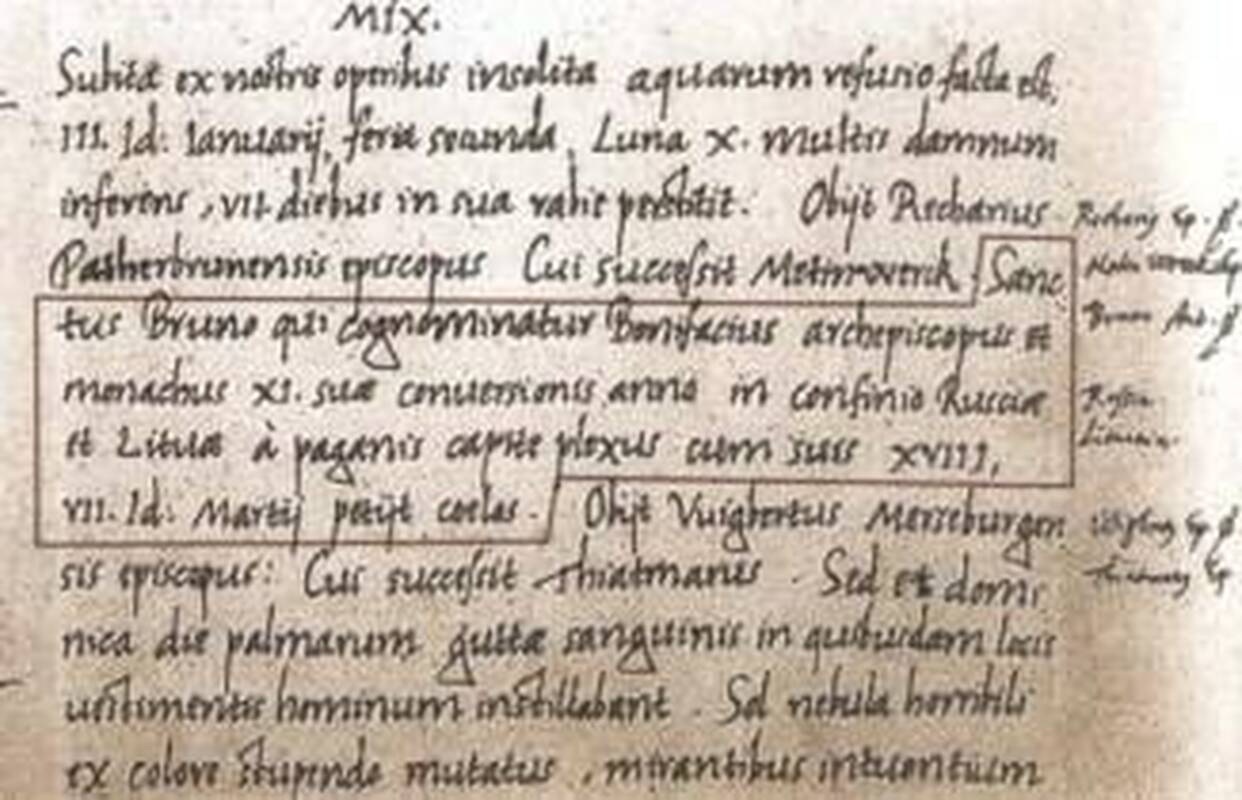 MIX.
Subita ex nostris opinibus insolita aquarum refusio facta est,
III. Id: Ianuarij, feria secunda, Luna X. multis damnum
inferens, VII diebus in sua rabie perstitit. Obijt Recharius
Patherbrunensis episcopus Cui successit Meinwerck Sanc
tus Bruno qui cognominatur Bonifacius archepiscopus et
monachus XI. suæ conuersionis anno in confinio Rusciæ
et Lituæ à paganis capite plexus cum suis XVIII,
VII. Id: Martij petijt coelos. Obijt Vuigbertus Merseburgen
sis episcopus: Cui successit Thiatmarus. Sed et domi
nica die palmarum guttæ sanguinis in quibusdam locis
uestimentis hominum instillabant. Sol nebula horribili
ex colore stupendo mutatus, mirantibus intuentium